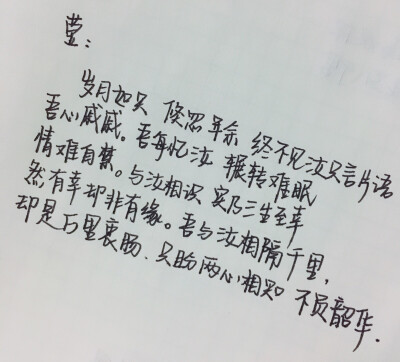 萱：
岁月如火 倏忽年余 终不见汝只言片语
吾心戚戚。吾每忆汝 辗转难眠
情难自禁。与汝相识 实乃三生至幸
然有幸却非有缘。吾与汝相隔千里，
却是百里衷肠．只盼两心相知 不负韶华．